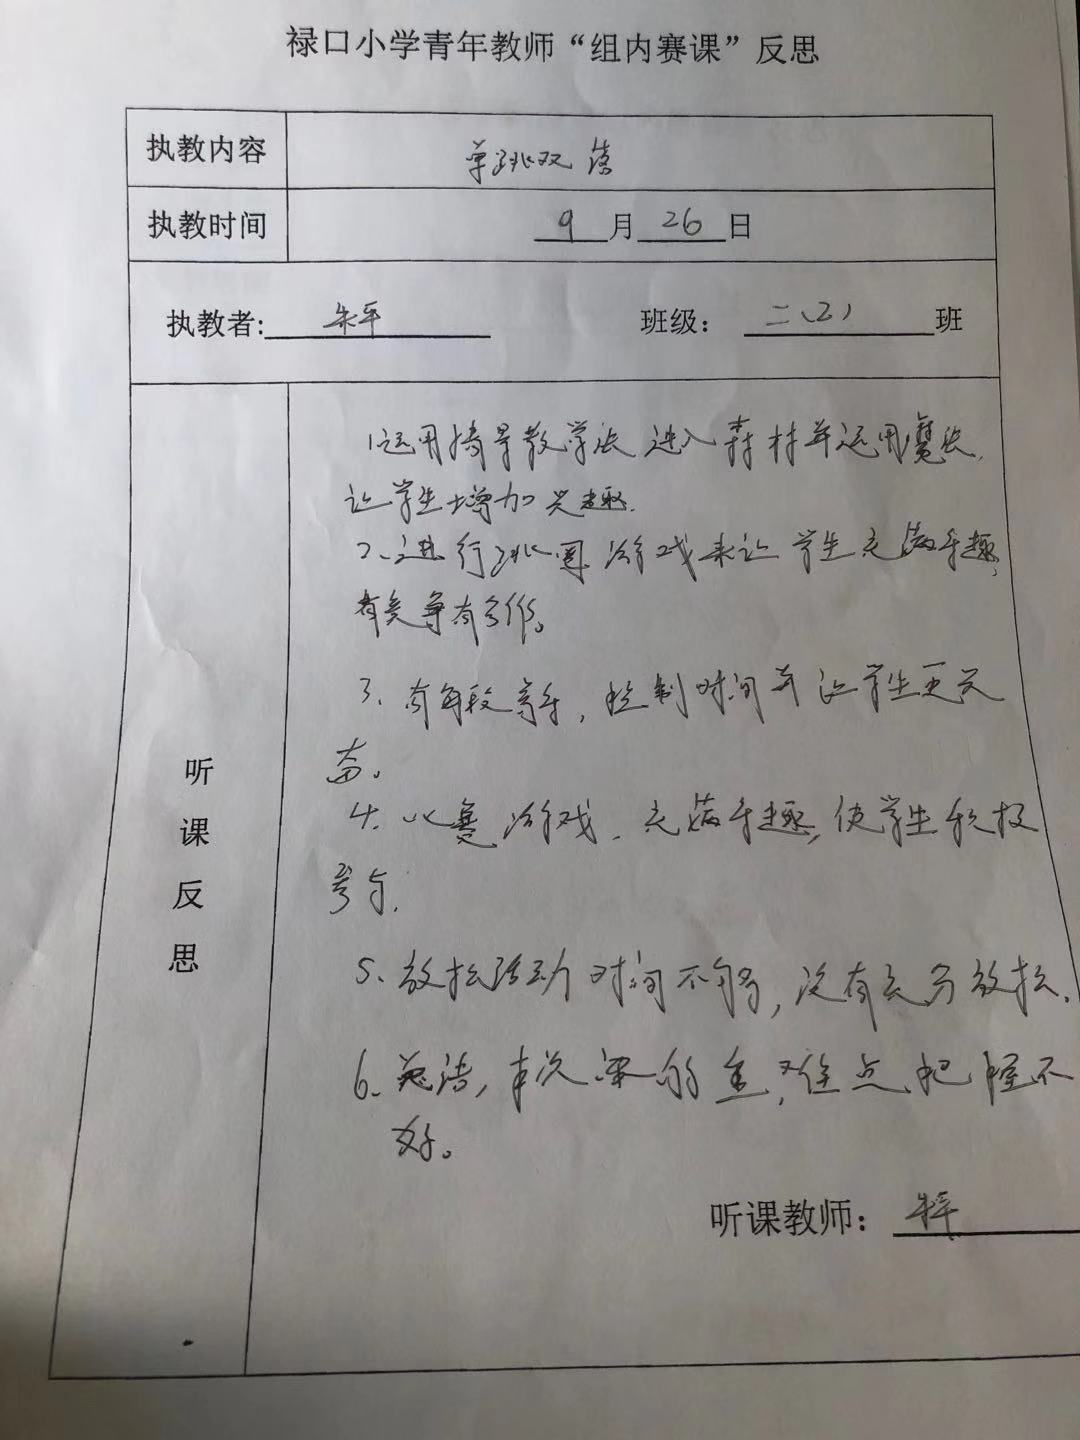 禄口小学青年教师“组内赛课”反思
执教内容 单跳双落
执教时间 9月26日
执教者: 朱平 班级： 二（2）班
听课反思
1.运用情景教学法 进入森林并运用魔法,
让学生增加兴趣.
2.进行跳圈游戏来让学生充满乐趣,
有竞争有合作。
3. 音乐, 控制时间并让学生更兴
奋。
4. 比赛游戏, 充满乐趣, 使学生积极
参与.
5、放松活动时间不够, 没有充分放松.
6、总结, 本次课的重,难点把握不
好。
听课教师： 朱平